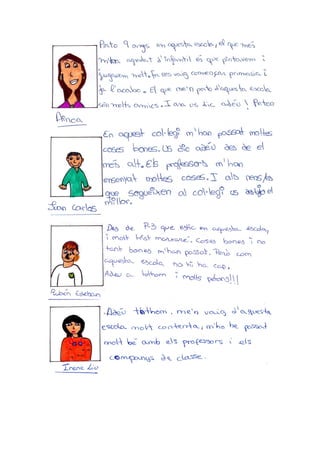 Porto 9 anys en aquesta escola, el que més
m'ha agradat d'infantil és que pintavem i
jugavem molt, després vaig començar primària i
ja l'acabo. El que me'n porto d'aquesta escola
són molts amics. I ara us dic adéu! Petó
Ainca
En aquest col·legi m'han passat moltes
coses bones. Us dic adéu des de el
més alt. Els professors m'han
ensenyat moltes coses. I als nens/es
que segueixen al col·legi us desitjo el
millor.
Juan Carlos
Des de P-3 que estic en aquesta escola,
i molt trist marxaré. Coses bones i no
tant bones m'han passat. Però com
aquesta escola no hi ha cap.
Adéu a tothom i molts petons!!!
Rubén Esteban
Adéu tothom, me'n vaig d'aquesta
escola molt contenta, m'ho he passat
molt bé amb els professors i els
companys de classe.
Irene Liu